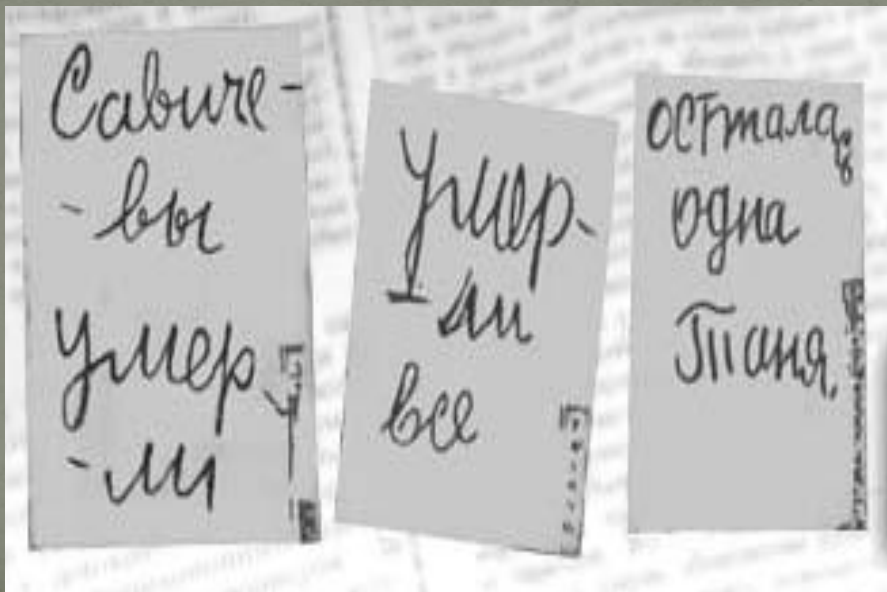 Савиче-
-вы
умер
-ли
Умер-
-ли
все
осталась
одна
Таня.